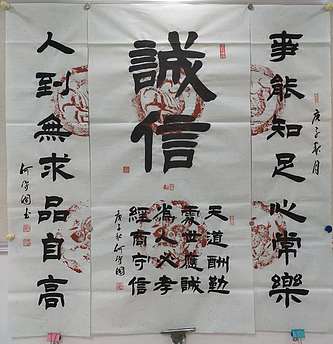 事能知足心常樂
庚子秋月
誠信
天道酬勤
處世應誠
為人必孝
經商守信
庚子秋
人到無求品自高